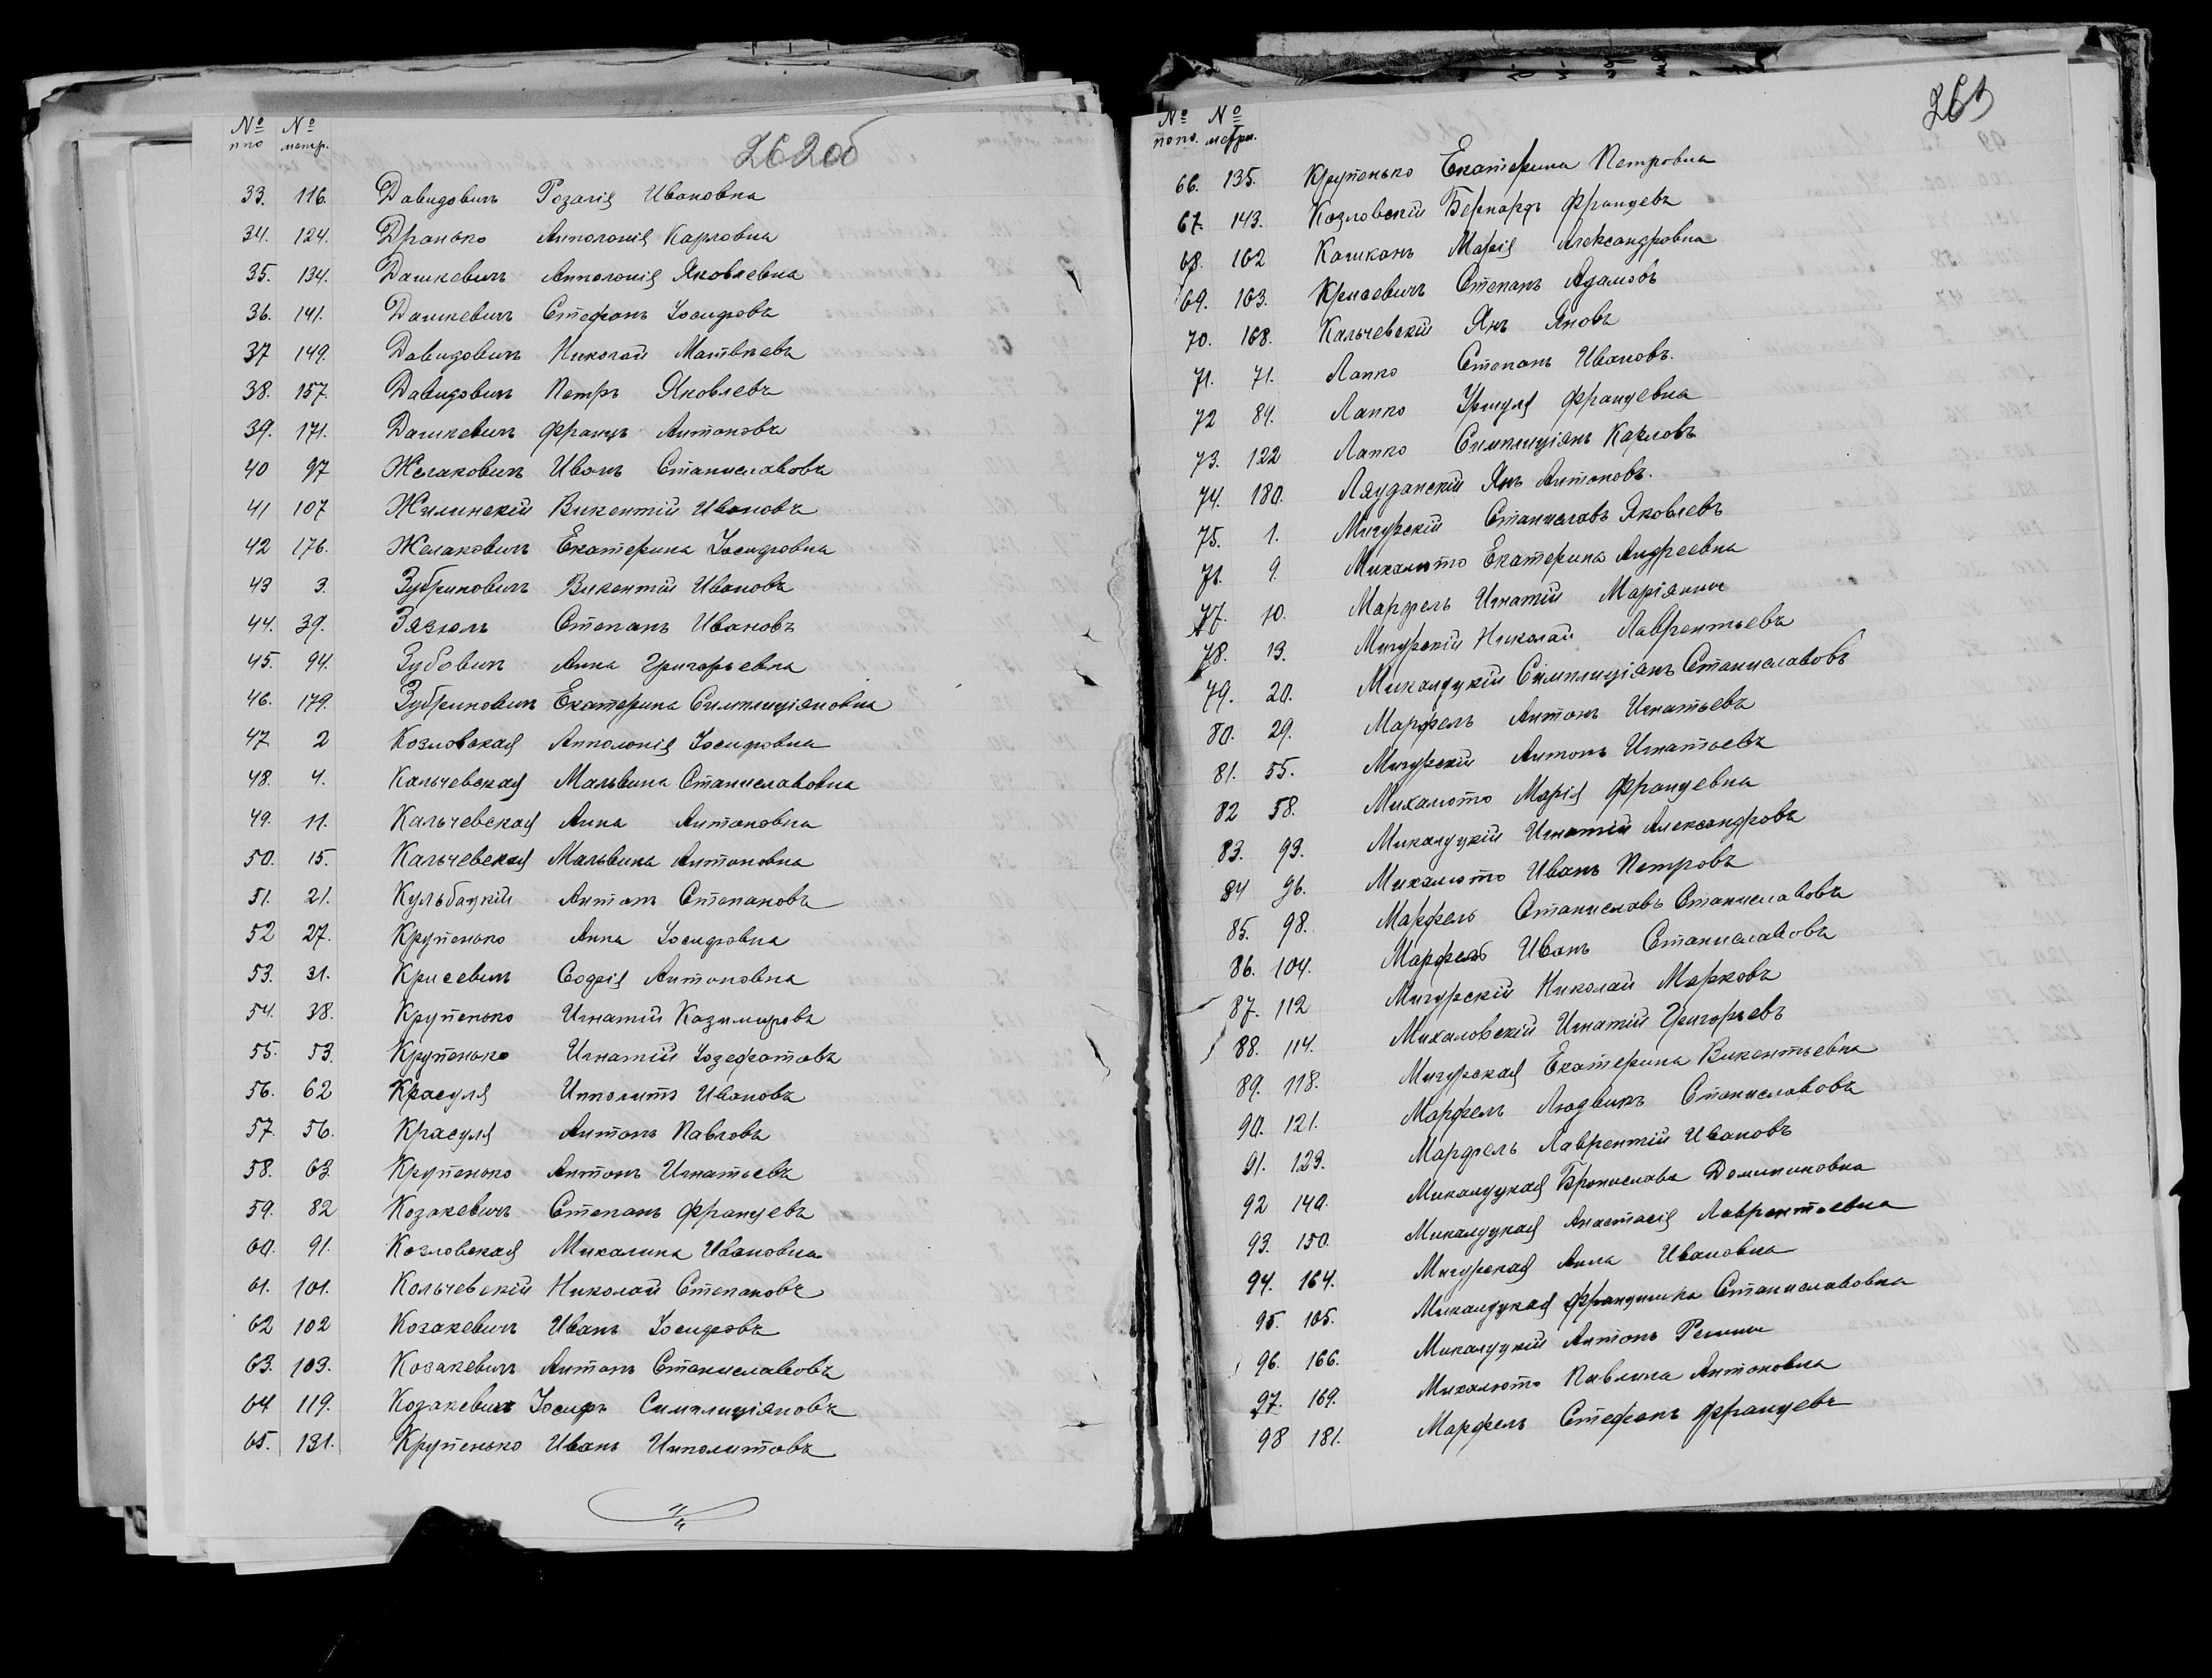 № № 262об
ппо метр.
33. 116. Давидовичъ Розалія Ивановна
34. 124. Дранько Апполонія Карловна
35. 134. Дашкевичъ Апполонія Яковлевна
36. 141. Дашкевичъ Стефанъ Іосифовъ
37 149. Давидовичъ Николай Матвѣевъ
38. 157. Давидовичъ Петръ Яковлевъ
39. 171. Дашкевичъ Францъ Антоновъ
40 97 Желаковичъ Иванъ Станиславовъ
41 107 Жилинскій Викентій Ивановъ
42 176. Желаковичъ Екатерина Іосифовна
43 3. Зубриновичъ Викентій Ивановъ
44. 39. Зязюль Степанъ Ивановъ
45. 94. Зубовичъ Анна Григорьевна
46. 179. Зубриновичъ Екатерина Симплиціяновна
47 2 Козловская Апполонія Іосифовна
48. 4. Кальчевская Мальвина Станиславовна
49. 11. Кальчевская Анна Антоновна
50. 15. Кальчевская Мальвина Антоновна
51. 21. Кульбацкій Антонъ Степановъ
52 27. Крупенько Анна Іосифовна
53. 31. Крисевичъ Софія Антоновна
54. 38. Крупенько Игнатій Казимировъ
55. 53. Крупенько Игнатій Іозефатовъ
56. 62 Красуля Ипполитъ Ивановъ
57. 56. Красуля Антонъ Павловъ
58. 63. Крупенько Антонъ Игнатьевъ
59. 82 Козакевичъ Степанъ Францевъ
60. 91. Козловская Михалина Ивановна
61. 101. Кольчевскій Николай Степановъ
62 102 Козакевичъ Иванъ Іосифовъ
63. 103. Козакевичъ Антонъ Станиславовъ
64 119. Козакевичъ Іосифъ Симплиціяновъ
65. 131. Крупенько Иванъ Ипполитовъ
№ № 263
по по. метри.
66. 135. Крупенько Екатерина Петровна
67. 143. Козловскій Бернардъ Францевъ
68. 162 Кашканъ Марія Александровна
69. 163. Крисевичъ Степанъ Адамовъ
70. 168. Кальчевскій Янъ Яновъ
71. 71. Лапко Степанъ Ивановъ.
72 84. Лапко Уршуля Францевна
73. 122 Лапко Симплиціянъ Карловъ
74. 180. Ляуданскій Янъ Антоновъ.
75. 1. Мигурскій Станиславъ Яковлевъ
71. 9. Михалюто Екатерина Андреевна
77. 10. Марфель Игнатій Маріянич
78. 13. Мигурскій Николай Лаврентьевъ
79. 20. Микалуцкій Симплиціянъ Станиславовъ
80. 29. Марфель Антонъ Игнатьевъ
81. 55. Мигурскій Антонъ Игнатьевъ
82 58. Михалюто Марія Францевна
83. 93. Микалуцкій Игнатій Александровъ
84 96. Михалюто Иванъ Петровъ
85. 98. Марфель Станиславъ Станиславовъ
86. 104. Марфель Иванъ Станиславовъ
87. 112 Мигурскій Николай Марковъ
88. 114. Михаловскій Игнатій Григорьевъ
89. 118. Мигурская Екатерина Викентьевна
90. 121. Марфель Людвикъ Станиславовъ
91. 123. Марфель Лаврентій Ивановъ
92 140. Микалуцкая Бронислава Доминиковна
93. 150. Микалуцкая Анастасія Лаврентьевна
94. 164. Мигурская Анна Ивановна
95. 165. Микалуцкая Францишка Станиславовна
96. 166. Микалуцкій Антонъ
97. 169. Михалюто Павлина Антоновна
98 181. Марфель Стефанъ Францевъ